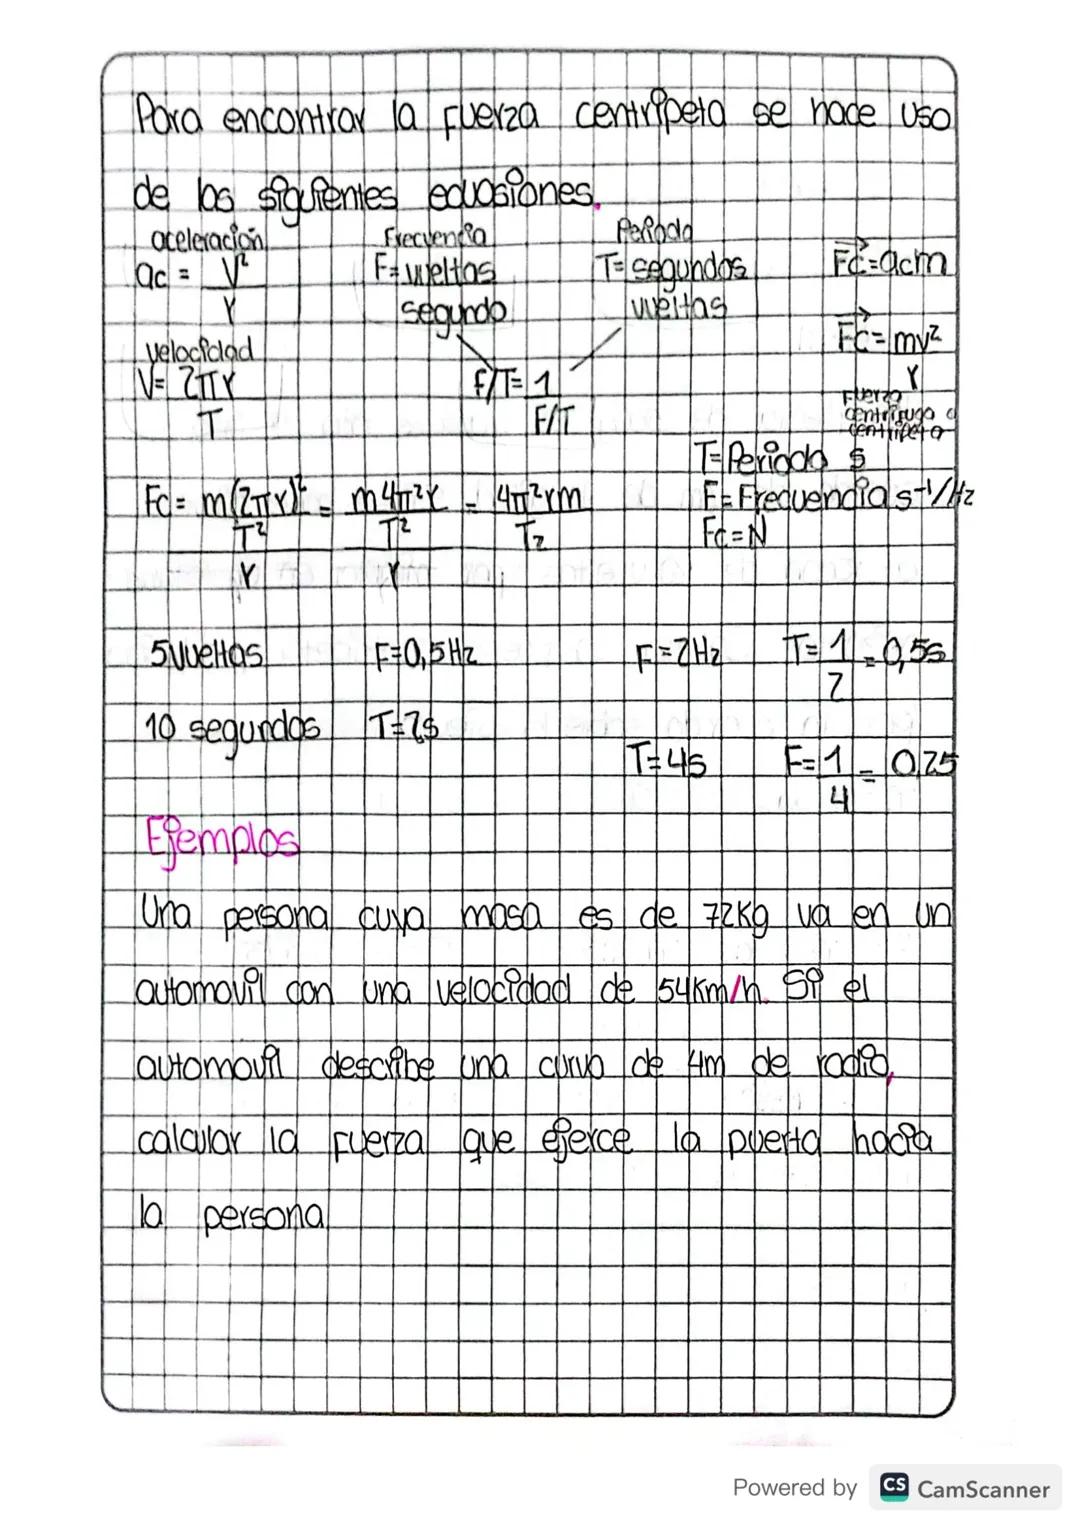 Para encontrar la fuerza centripeta se hace uso
de las siguientes ecuasiones.
aceleración
ac = V²/r
Frecuencia
F= vueltas/segundo
Periodo
T= segundos/vueltas
Fc=acm
velocidad
V= 2πr/T
F/T= 1/F/T
Fc= mv²/r
Fuerza
centrifuga o
centripeta
T= Periodo s
F= Frecuencia s⁻¹/Hz
Fc=N
Fc= m(2πr)²/T²/r = m4π²r/T²/r = 4π²rm/T2
5 vueltas F=0,5Hz F=2Hz T= 1/2 = 0,5s
10 segundos T=2s
T=4s F= 1/4 = 0,25
Ejemplos
Una persona cuya masa es de 72Kg va en un
automovil con una velocidad de 54Km/h. Si el
automovil describe una curva de 4m de radio,
calcular la fuerza que ejerce la puerta hacia
la persona
Powered by CS CamScanner